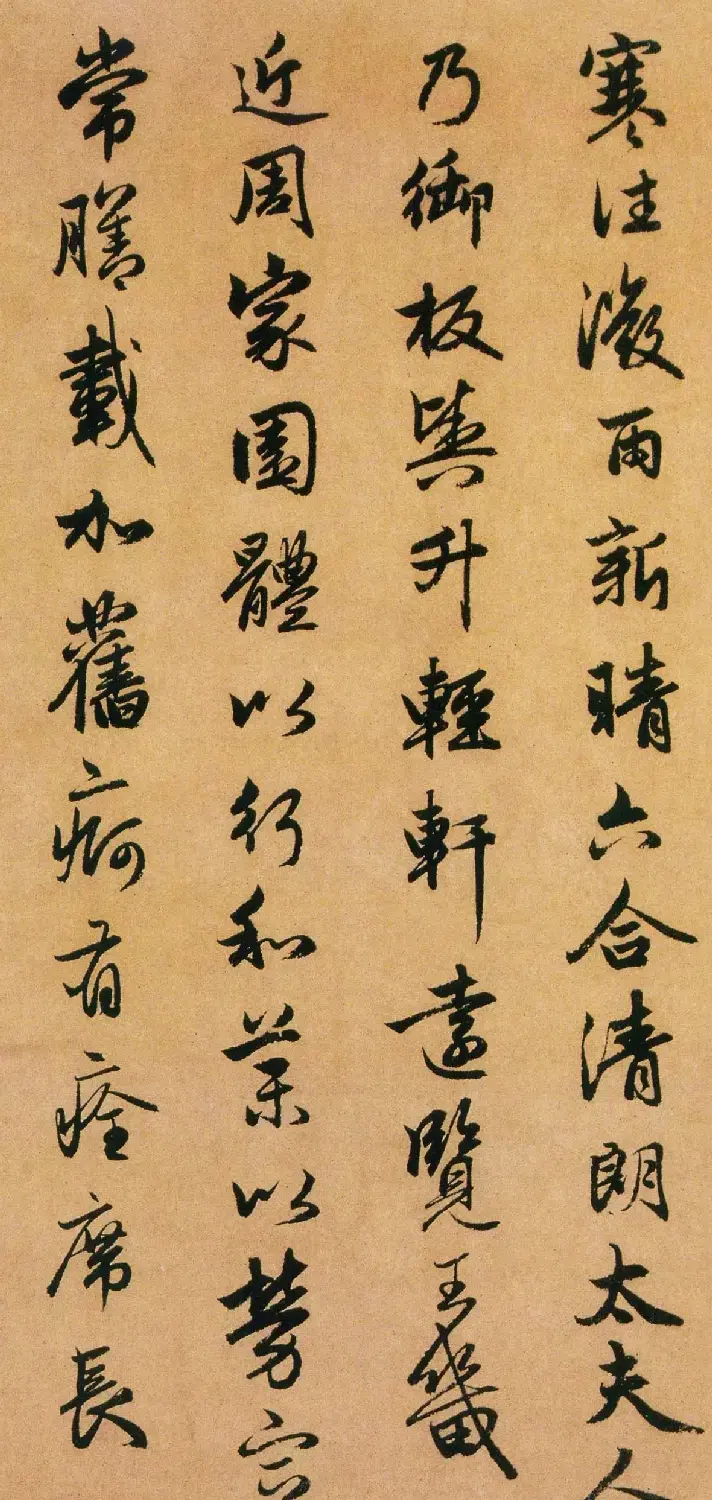 寒往微雨新晴六合清朗太夫人
乃御板輿升輕軒遠覽王畿
近周家園體以行和藥以勞宣
常膳載加舊痾有痊席長